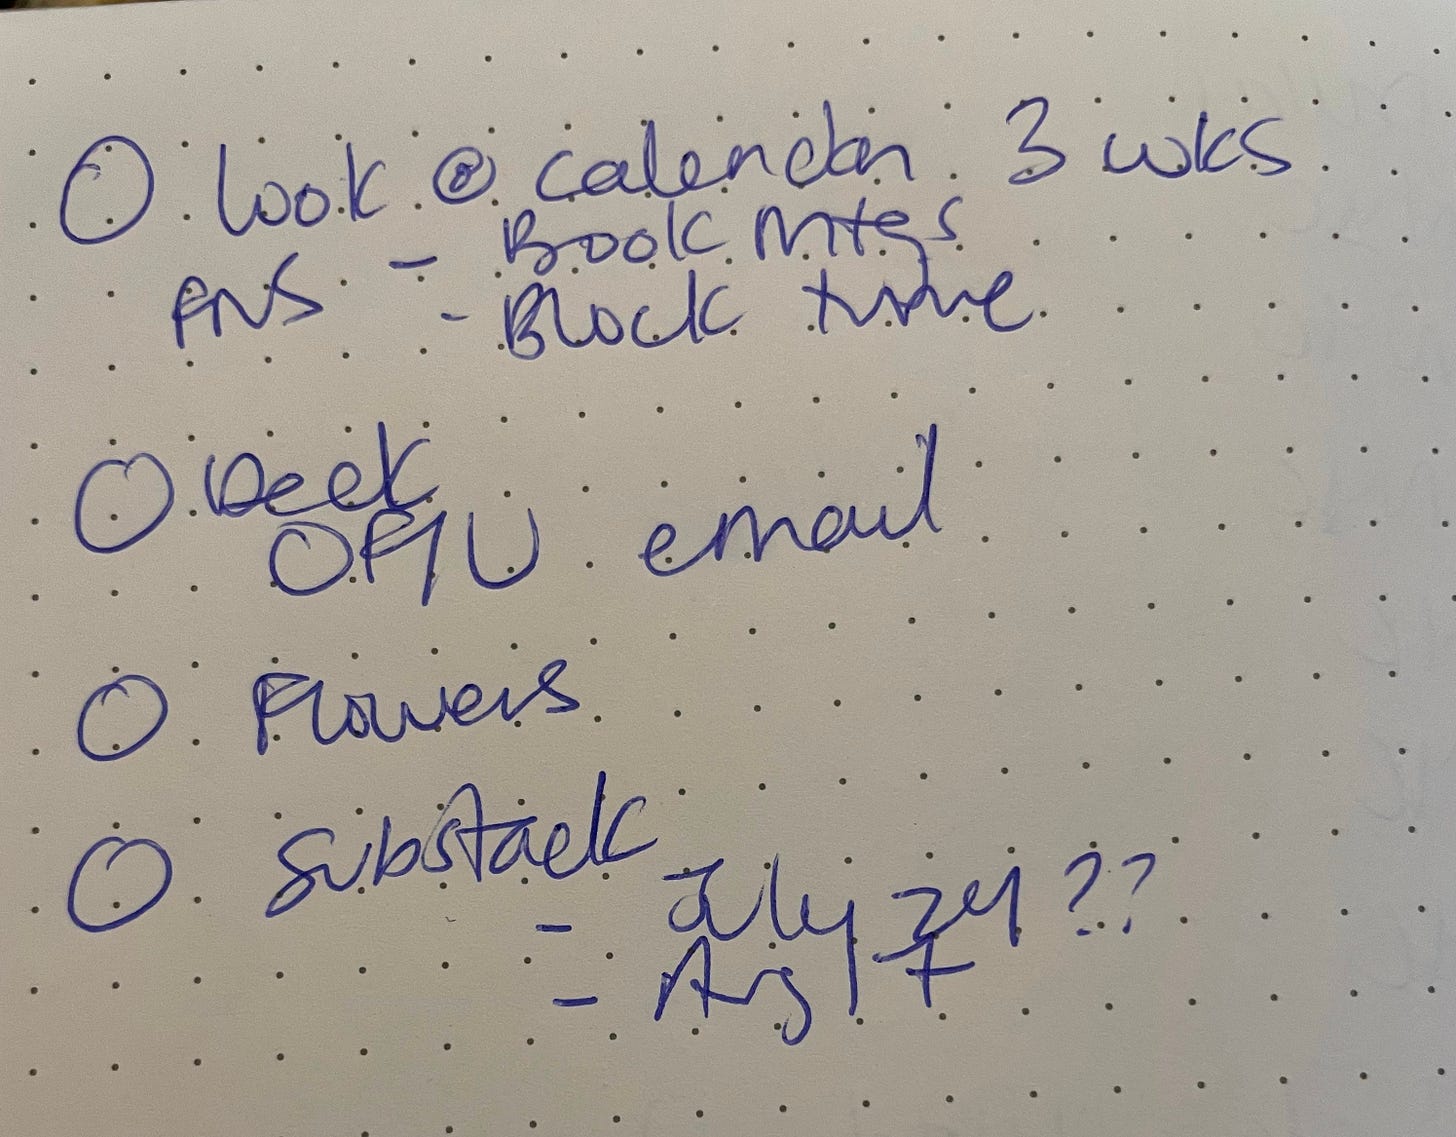 look @ calendar 3 wks
- Book mtgs
- Block time
Deck
email
Flowers
Substack
- July 24 ??
- Aug 17